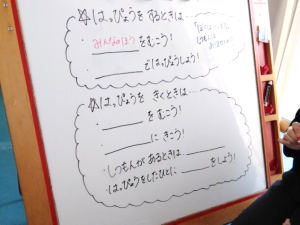 ☆はっぴょうをするときは…
・みんなのほうをむこう!
・______ではっぴょうしよう!
☆はっぴょうをきくときは…
・______をむこう!
・______にきこう!
・しつもんがあるときは______
はっぴょうをしたひとに______をしよう!